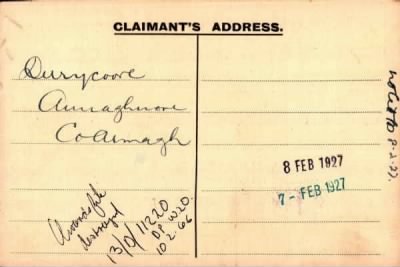 CLAIMANT'S ADDRESS.
Derrycoose
Annaghmore
Co Armagh
8 FEB 1927
7 - FEB 1927
Awards file
destroyed
13/0/11220
DP W20.
10.2.66
8-2-27.